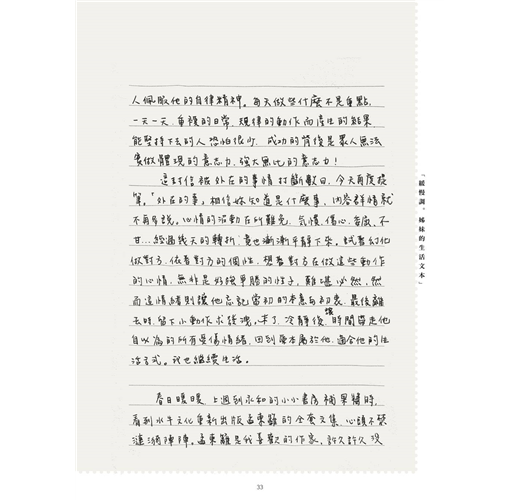 人佩服他的自律精神。每天做些什麼不是重點,
一天一天,重複的日常,規律的動作而產生的結果,
能堅持下去的人恐怕很少,成功的背後是眾人無法
體現的意志力,強大無比的意志力!
這封信被外在的事情打斷數日,今天再度提
筆。「外在的事,相信妳知道是什麼事,
不再多說。心情的波動在所難免,氣憤、傷心、委屈、不
甘…經過幾天的轉折,竟也漸漸平靜下來。試著幻化
做對方,依著對方的個性,想著對方在做這些動作
的心情,無非是好強爭勝的性子,難堪必然,然
而這情緒則讓他忘記當初的本意與初衷,最後離
去時,留下小動作求發洩,末了,冷靜後,時間會還他
自以為的所有受傷情緒,回到原本屬於他、適合他的生
活方式。我也繼續生活。
春日暖暖,上週到永和的小小書房補果醬時,
看到水牛文化重新出版孟東籬的全套文集,心頭不禁
漣漪陣陣。孟東籬是我喜歡的作家,許久許久沒
「緩慢調。姊妹的生活文本」
33